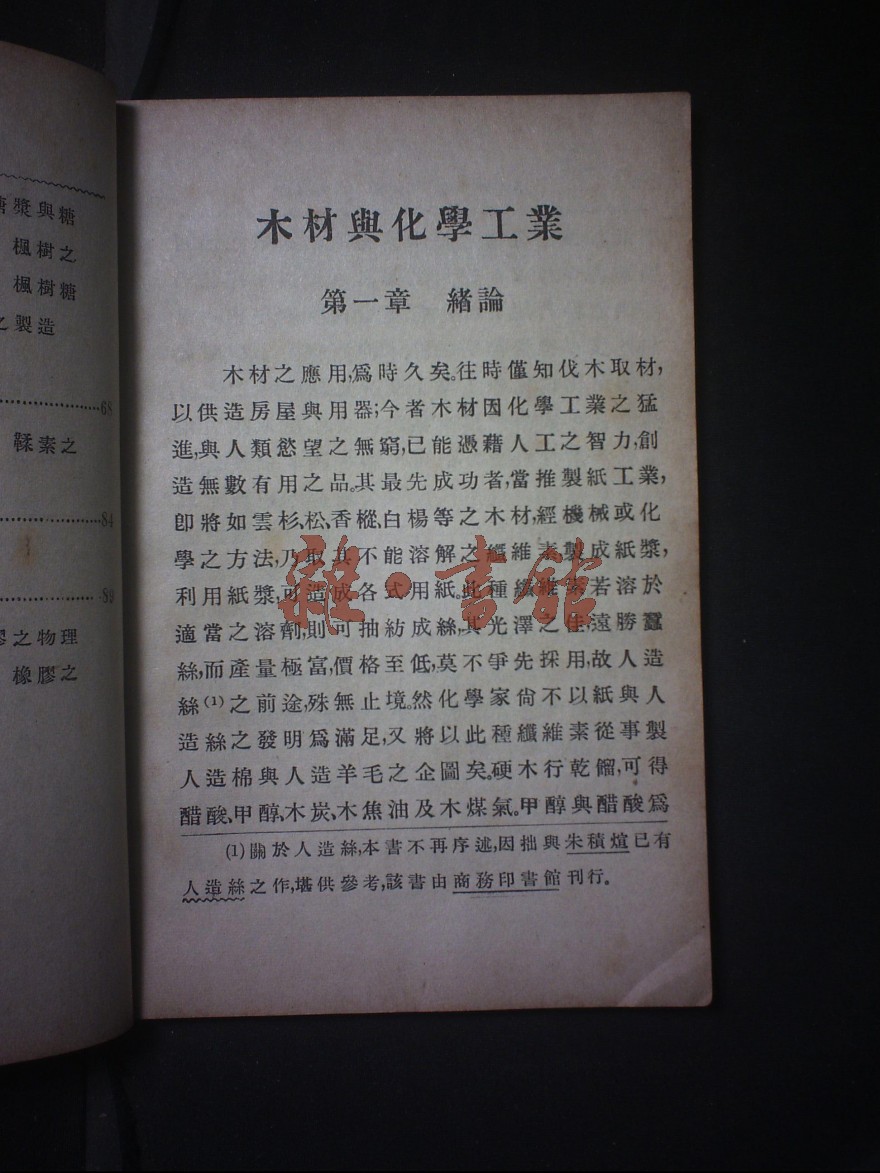 漿與糖
楓樹之
楓樹糖
之製造
68
鞣素之
84
89
膠之物理
橡膠之
木材與化學工業
第一章 緒論
木材之應用,爲時久矣。往時僅知伐木取材,
以供造房屋與用器;今者木材因化學工業之猛
進,與人類慾望之無窮,已能憑藉人工之智力,創
造無數有用之品。其最先成功者,當推製紙工業,
卽將如雲杉、松、香樅、白楊等之木材,經機械或化
學之方法,乃取其不能溶解之纖維素製成紙漿,
利用紙漿,可造成各式用紙。此種纖維素若溶於
適當之溶劑,則可抽紡成絲,其光澤之佳,遠勝蠶
絲,而產量極富,價格至低,莫不爭先採用,故人造
絲⁽¹⁾之前途,殊無止境。然化學家尙不以紙與人
造絲之發明爲滿足,又將以此種纖維素從事製
人造棉與人造羊毛之企圖矣。硬木行乾餾,可得
醋酸、甲醇、木炭、木焦油及木煤氣。甲醇與醋酸爲
(1)關於人造絲,本書不再序述,因拙與朱積煊已有
人造絲之作,堪供參考,該書由商務印書館刊行。
雜·書館